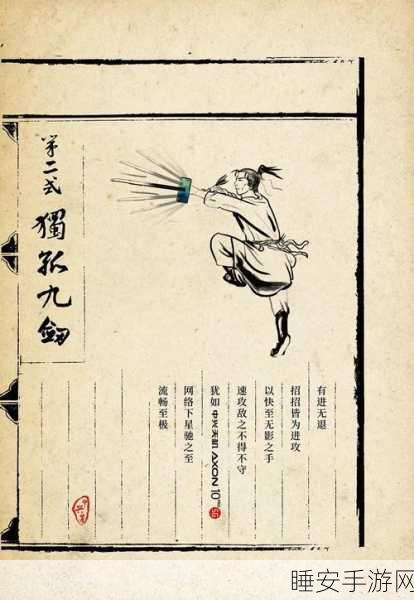 第二式
獨孤九劍
有进无退
招招皆为进攻
以快至无影之手
速攻敌之不得不守
犹如中兴天机AXON 10 Pro 5G
网络下星驰之至
流畅至极
睡安手游网